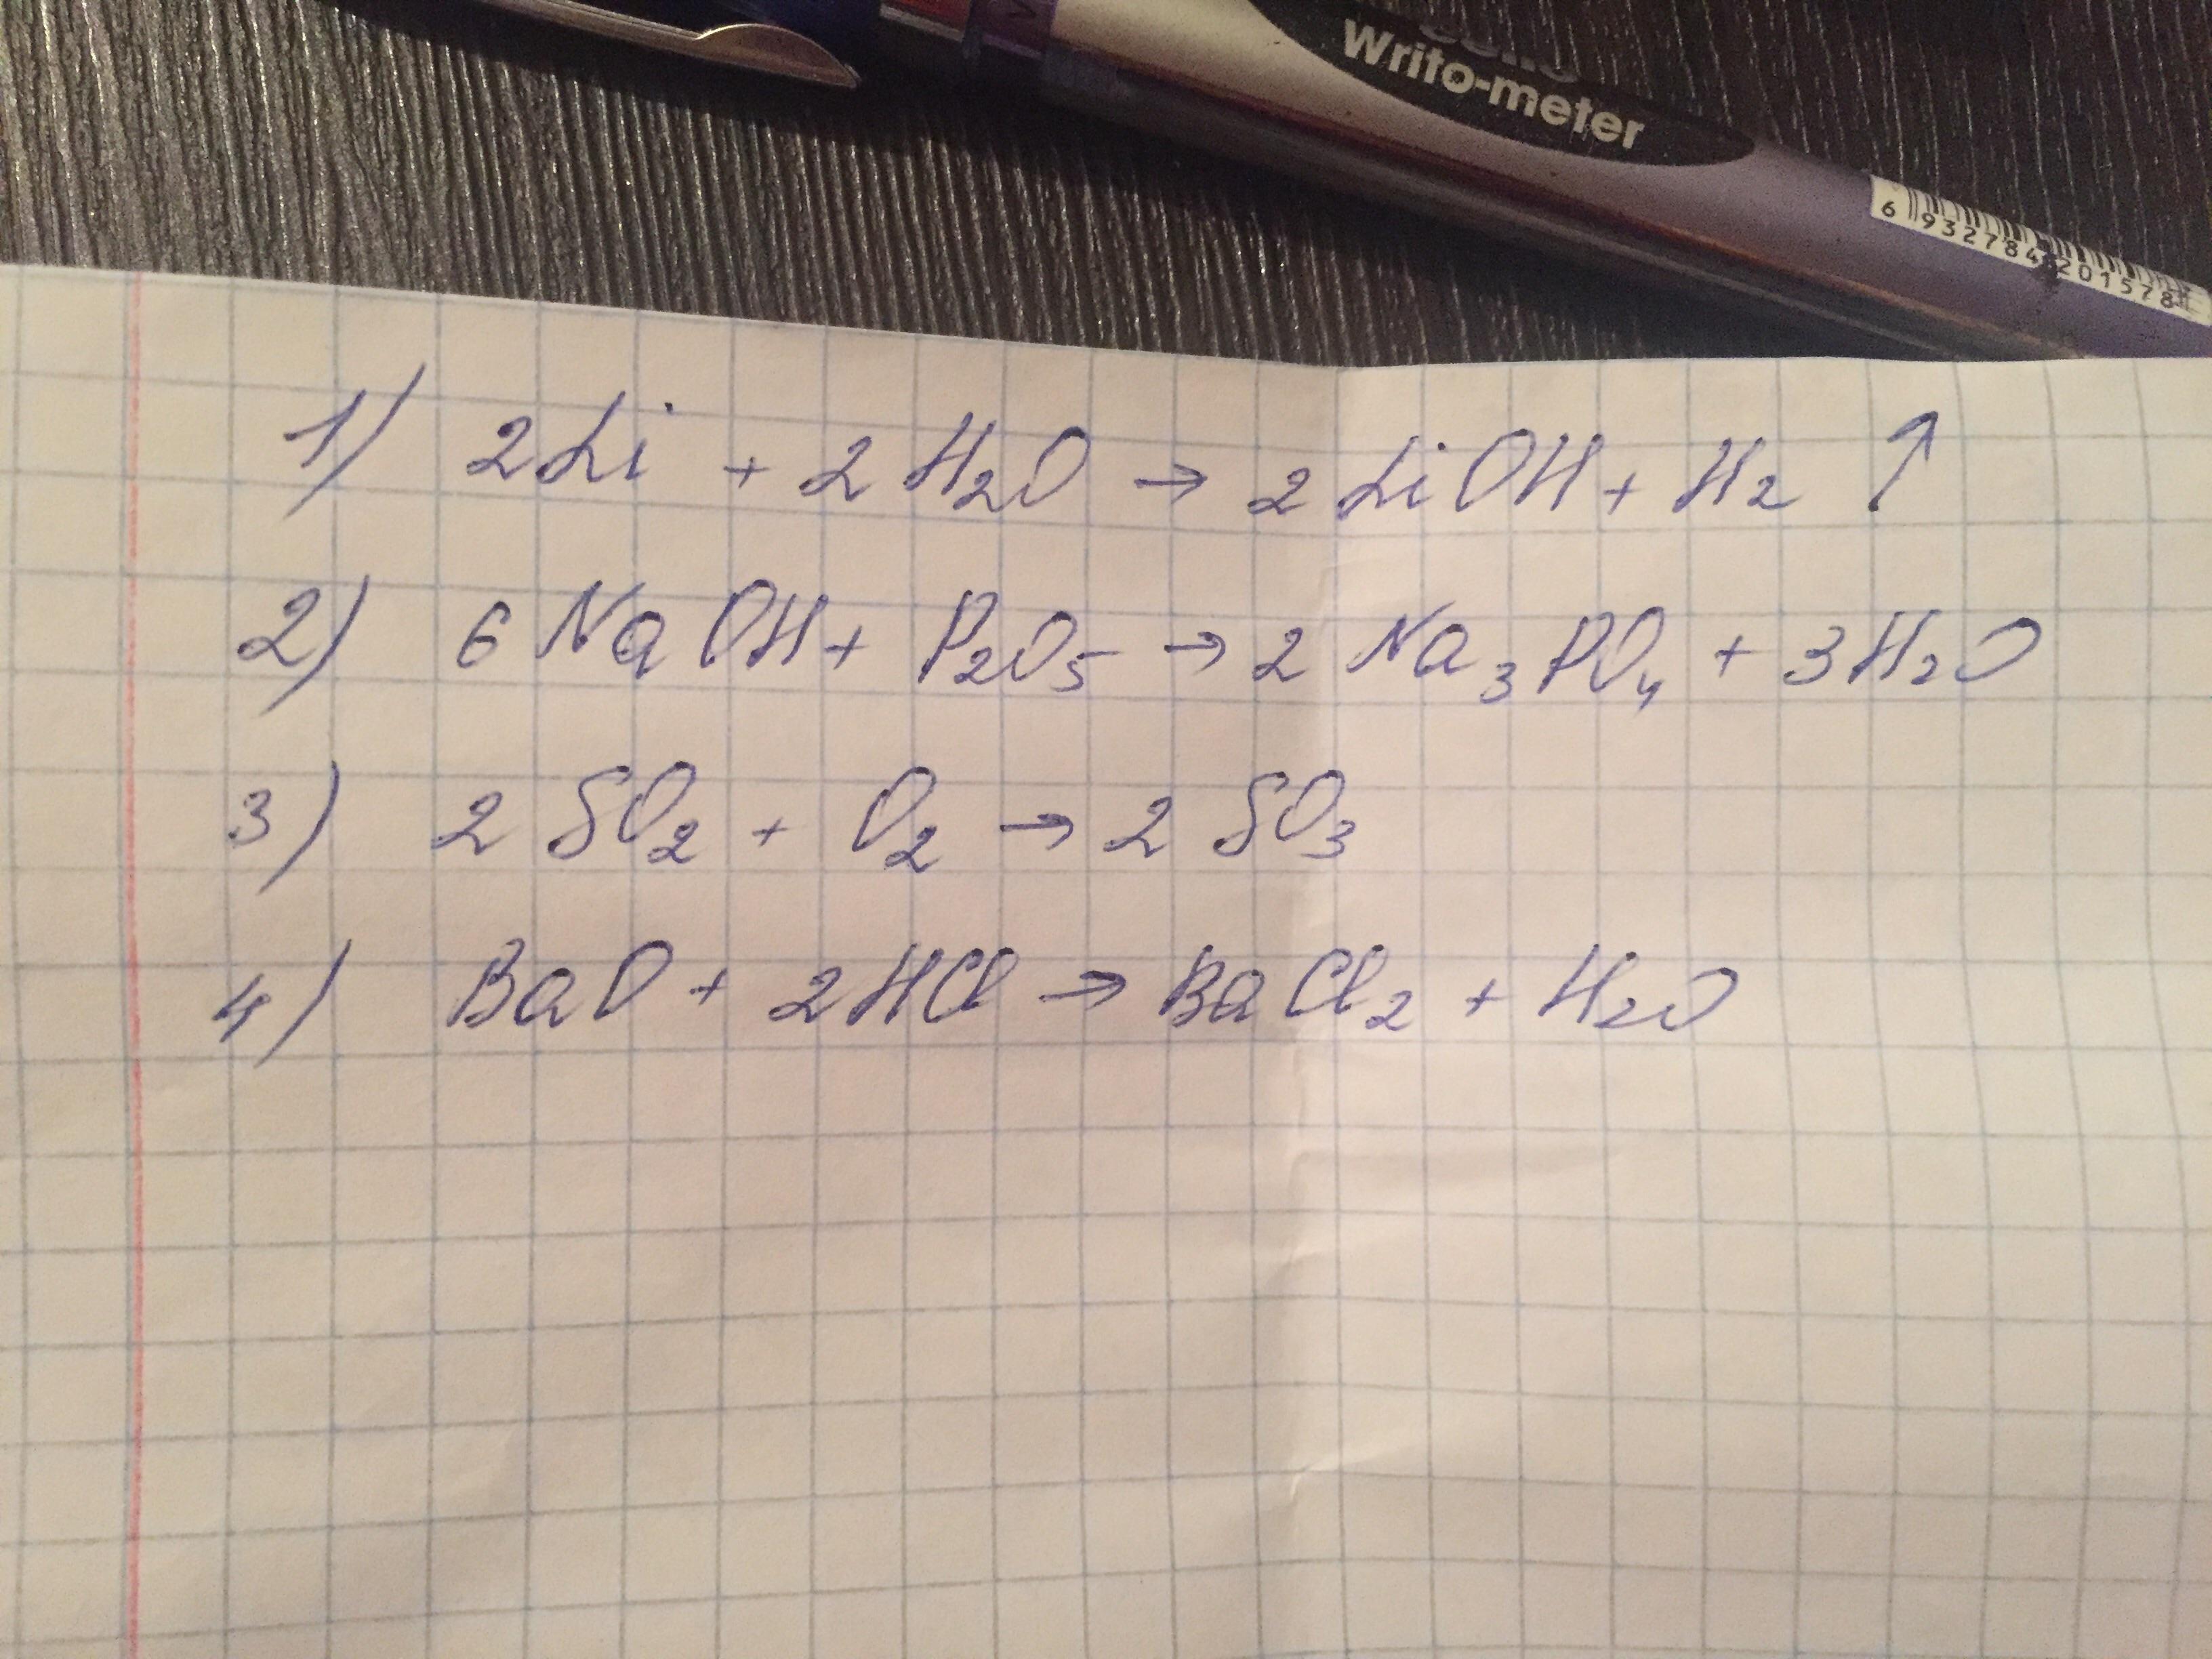 cello
Writo-meter
6 932784 201578
1) 2Li + 2H₂O → 2LiOH + H₂ ↑
2) 6NaOH + P₂O₅ → 2Na₃PO₄ + 3H₂O
3) 2SO₂ + O₂ → 2SO₃
4) BaO + 2HCl → BaCl₂ + H₂O